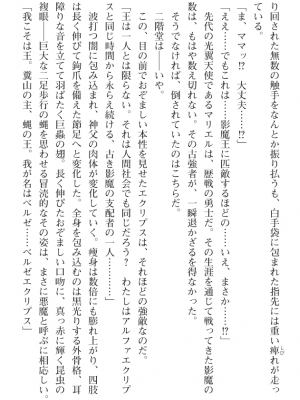 り回された無数の触手をなんとか振り払うも、白手袋に包まれた指先には重い痺れが走っ
ている。
「ま、ママッ!?　大丈夫……!?」
「ええ……でもこれは……影魔王に匹敵するほどの……いえ、まさか……!?」
先代の光翼天使であるマリエルは、歴戦の勇士だ。その生涯を通じて戦ってきた影魔の
数は、もはや数え切れない。その古強者が、一瞬退かざるを得なかった。
そうでなければ、倒されていたのはこちらだ。
「二階堂は……いや」
この、目の前でおぞましい本性を見せたエクリプスは、それほどの強敵なのだ。
「王は一人とは限らない。それは人間社会でも同じだろう？　わたしはアルファエクリプ
スと同じ時間から永らえ続ける、古き影魔の支配者の一人……」
波打つ闇に包み込まれ、神父の肉体が変化していく。痩身は数倍にも膨れ上がり、四肢
は長く伸びて鉤爪を備えた節足へと変化した。全身を包み込むのは黒光りする外骨格、耳
障りな音を立てて羽ばたく巨蟲の翅。長く伸びたおぞましい口吻に、真っ赤に輝く昆虫の
複眼――巨大な二足歩行の蠅を思わせる冒涜的なその姿は、まさに悪魔と呼ぶに相応しい。
「我こそは王。糞山の主、蠅の王。我が名はベルゼ――ベルゼエクリプス」
しび